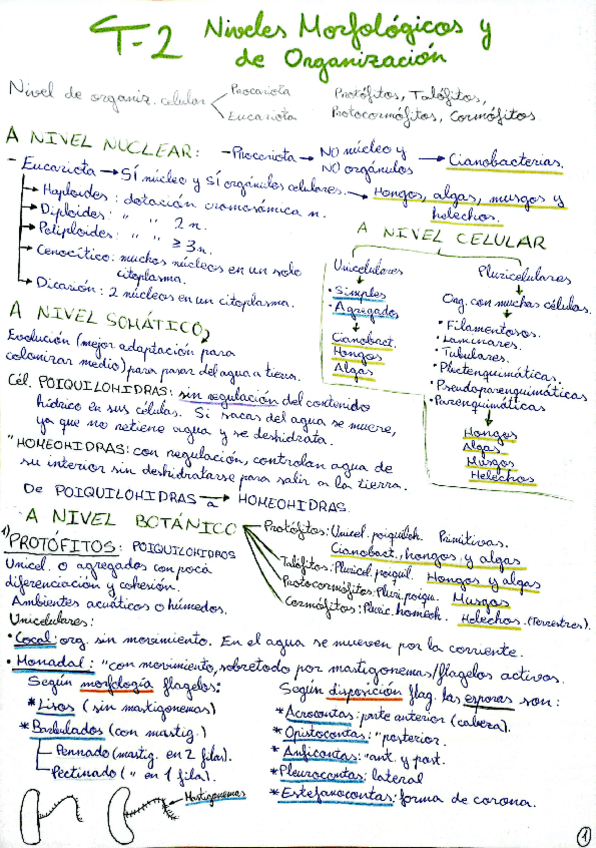 T-2 Niveles Morfológicos y
de Organización
Nivel de organiz. celular
Procariota
Eucariota
Protófitos, Talófitos,
Protocormófitos, Cormófitos
A NIVEL NUCLEAR: - Procariota → NO núcleo y
NO orgánulos → Cianobacterias.
- Eucariota → SÍ núcleo y SÍ orgánulos celulares. → Hongos, algas, musgos y
helechos.
→ Haploides: dotación cromosómica n.
→ Diploides: " " 2n.
→ Poliploides: " " ≥3n.
→ Cenocítico: muchos núcleos en un solo
citoplasma.
→ Dicarión: 2 núcleos en un citoplasma.
A NIVEL CELULAR
Unicelulares
• Simples
• Agregados
Cianobact.
Hongos
Algas
Pluricelulares
Org. con muchas células.
• Filamentosos.
• Laminares.
• Tubulares.
• Plectenquimáticas.
• Pseudoparenquimáticas
• Parenquimáticas
Hongos
Algas
Musgos
Helechos
A NIVEL SOMÁTICO
Evolución (mejor adaptación para
colonizar medio) para pasar del agua a tierra.
Cél. POIQUILOHIDRAS: sin regulación del contenido
hídrico en sus células. Si sacas del agua se muere,
ya que no retiene agua y se deshidrata.
" HOMEOHIDRAS: con regulación, controlan agua de
su interior sin deshidratarse para salir a la tierra.
De POIQUILOHIDRAS a → HOMEOHIDRAS.
A NIVEL BOTÁNICO
Protófitos: Unicel. poiquiloh. Primitivas.
Cianobact., hongos y algas
Talófitos: Pluricel. poiquil. Hongos y algas
Protocormófitos: Pluri. poiqu. Musgos
Cormófitos: Pluric. homeoh. Helechos. (Terrestres).
1) PROTÓFITOS: POIQUILOHIDROS
Unicel. o agregados con poca
diferenciación y cohesión.
Ambientes acuáticos o húmedos.
Unicelulares:
• Cocal: org. sin movimiento. En el agua se mueven por la corriente.
• Monadal: " con movimiento, sobretodo por mastigonemas/flagelos activos.
Según morfología flagelos:
* Lisos (sin mastigonemas)
* Barbulados (con mastig.)
Pennado (mastig. en 2 filas).
Pectinado (" en 1 fila).
Mastigonemas
Según disposición flag. las esporas son:
* Acrocontas: parte anterior (cabeza).
* Opistocontas: " posterior.
* Anficontas: " ant. y post.
* Pleurocontas: lateral
* Estefanocontas: forma de corona.
1